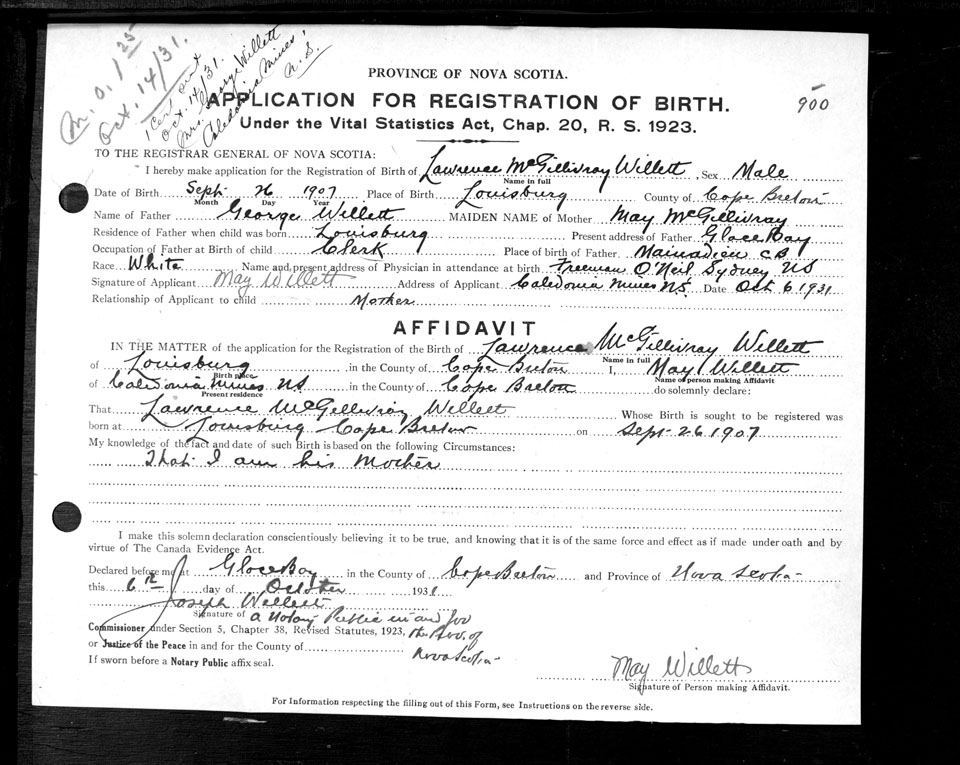 M.O. 1 25
Oct. 14/31.
1 Cert. sent
Oct. 14/31.
Mrs. George Willett
Caledonia Mines,
N. S.
PROVINCE OF NOVA SCOTIA.
APPLICATION FOR REGISTRATION OF BIRTH. 900
Under the Vital Statistics Act, Chap. 20, R. S. 1923.
TO THE REGISTRAR GENERAL OF NOVA SCOTIA:
I hereby make application for the Registration of Birth of Lawrence McGillivray Willett, Sex Male
Name in full
Date of Birth Sept. 26 1907 Place of Birth Louisburg County of Cape Breton
Month Day Year
Name of Father George Willett MAIDEN NAME of Mother May McGillivray
Residence of Father when child was born Louisburg Present address of Father Glace Bay
Occupation of Father at Birth of child Clerk Place of birth of Father Mainadieu C B
Race White Name and present address of Physician in attendance at birth Freeman O'Neil Sydney NS
Signature of Applicant May Willett Address of Applicant Caledonia Mines NS. Date Oct 6 1931
Relationship of Applicant to child Mother
AFFIDAVIT
IN THE MATTER of the application for the Registration of the Birth of Lawrence McGillivray Willett
Name in full
of Louisburg in the County of Cape Breton I, May Willett
Birth place Name of person making Affidavit
of Caledonia Mines NS in the County of Cape Breton do solemnly declare:
Present residence
That Lawrence McGillivray Willett Whose Birth is sought to be registered was
born at Louisburg Cape Breton on Sept 26 1907
My knowledge of the fact and date of such Birth is based on the following Circumstances:
That I am his Mother
I make this solemn declaration conscientiously believing it to be true, and knowing that it is of the same force and effect as if made under oath and by
virtue of The Canada Evidence Act.
Declared before me at Glace Bay in the County of Cape Breton and Province of Nova Scotia
this 6th day of October 1931
Joseph Willett
Signature of a Notary Public in and for
Commissioner under Section 5, Chapter 38, Revised Statutes, 1923, the Prov. of
or Justice of the Peace in and for the County of Nova Scotia
If sworn before a Notary Public affix seal.
May Willett
Signature of Person making Affidavit.
For Information respecting the filling out of this Form, see Instructions on the reverse side.